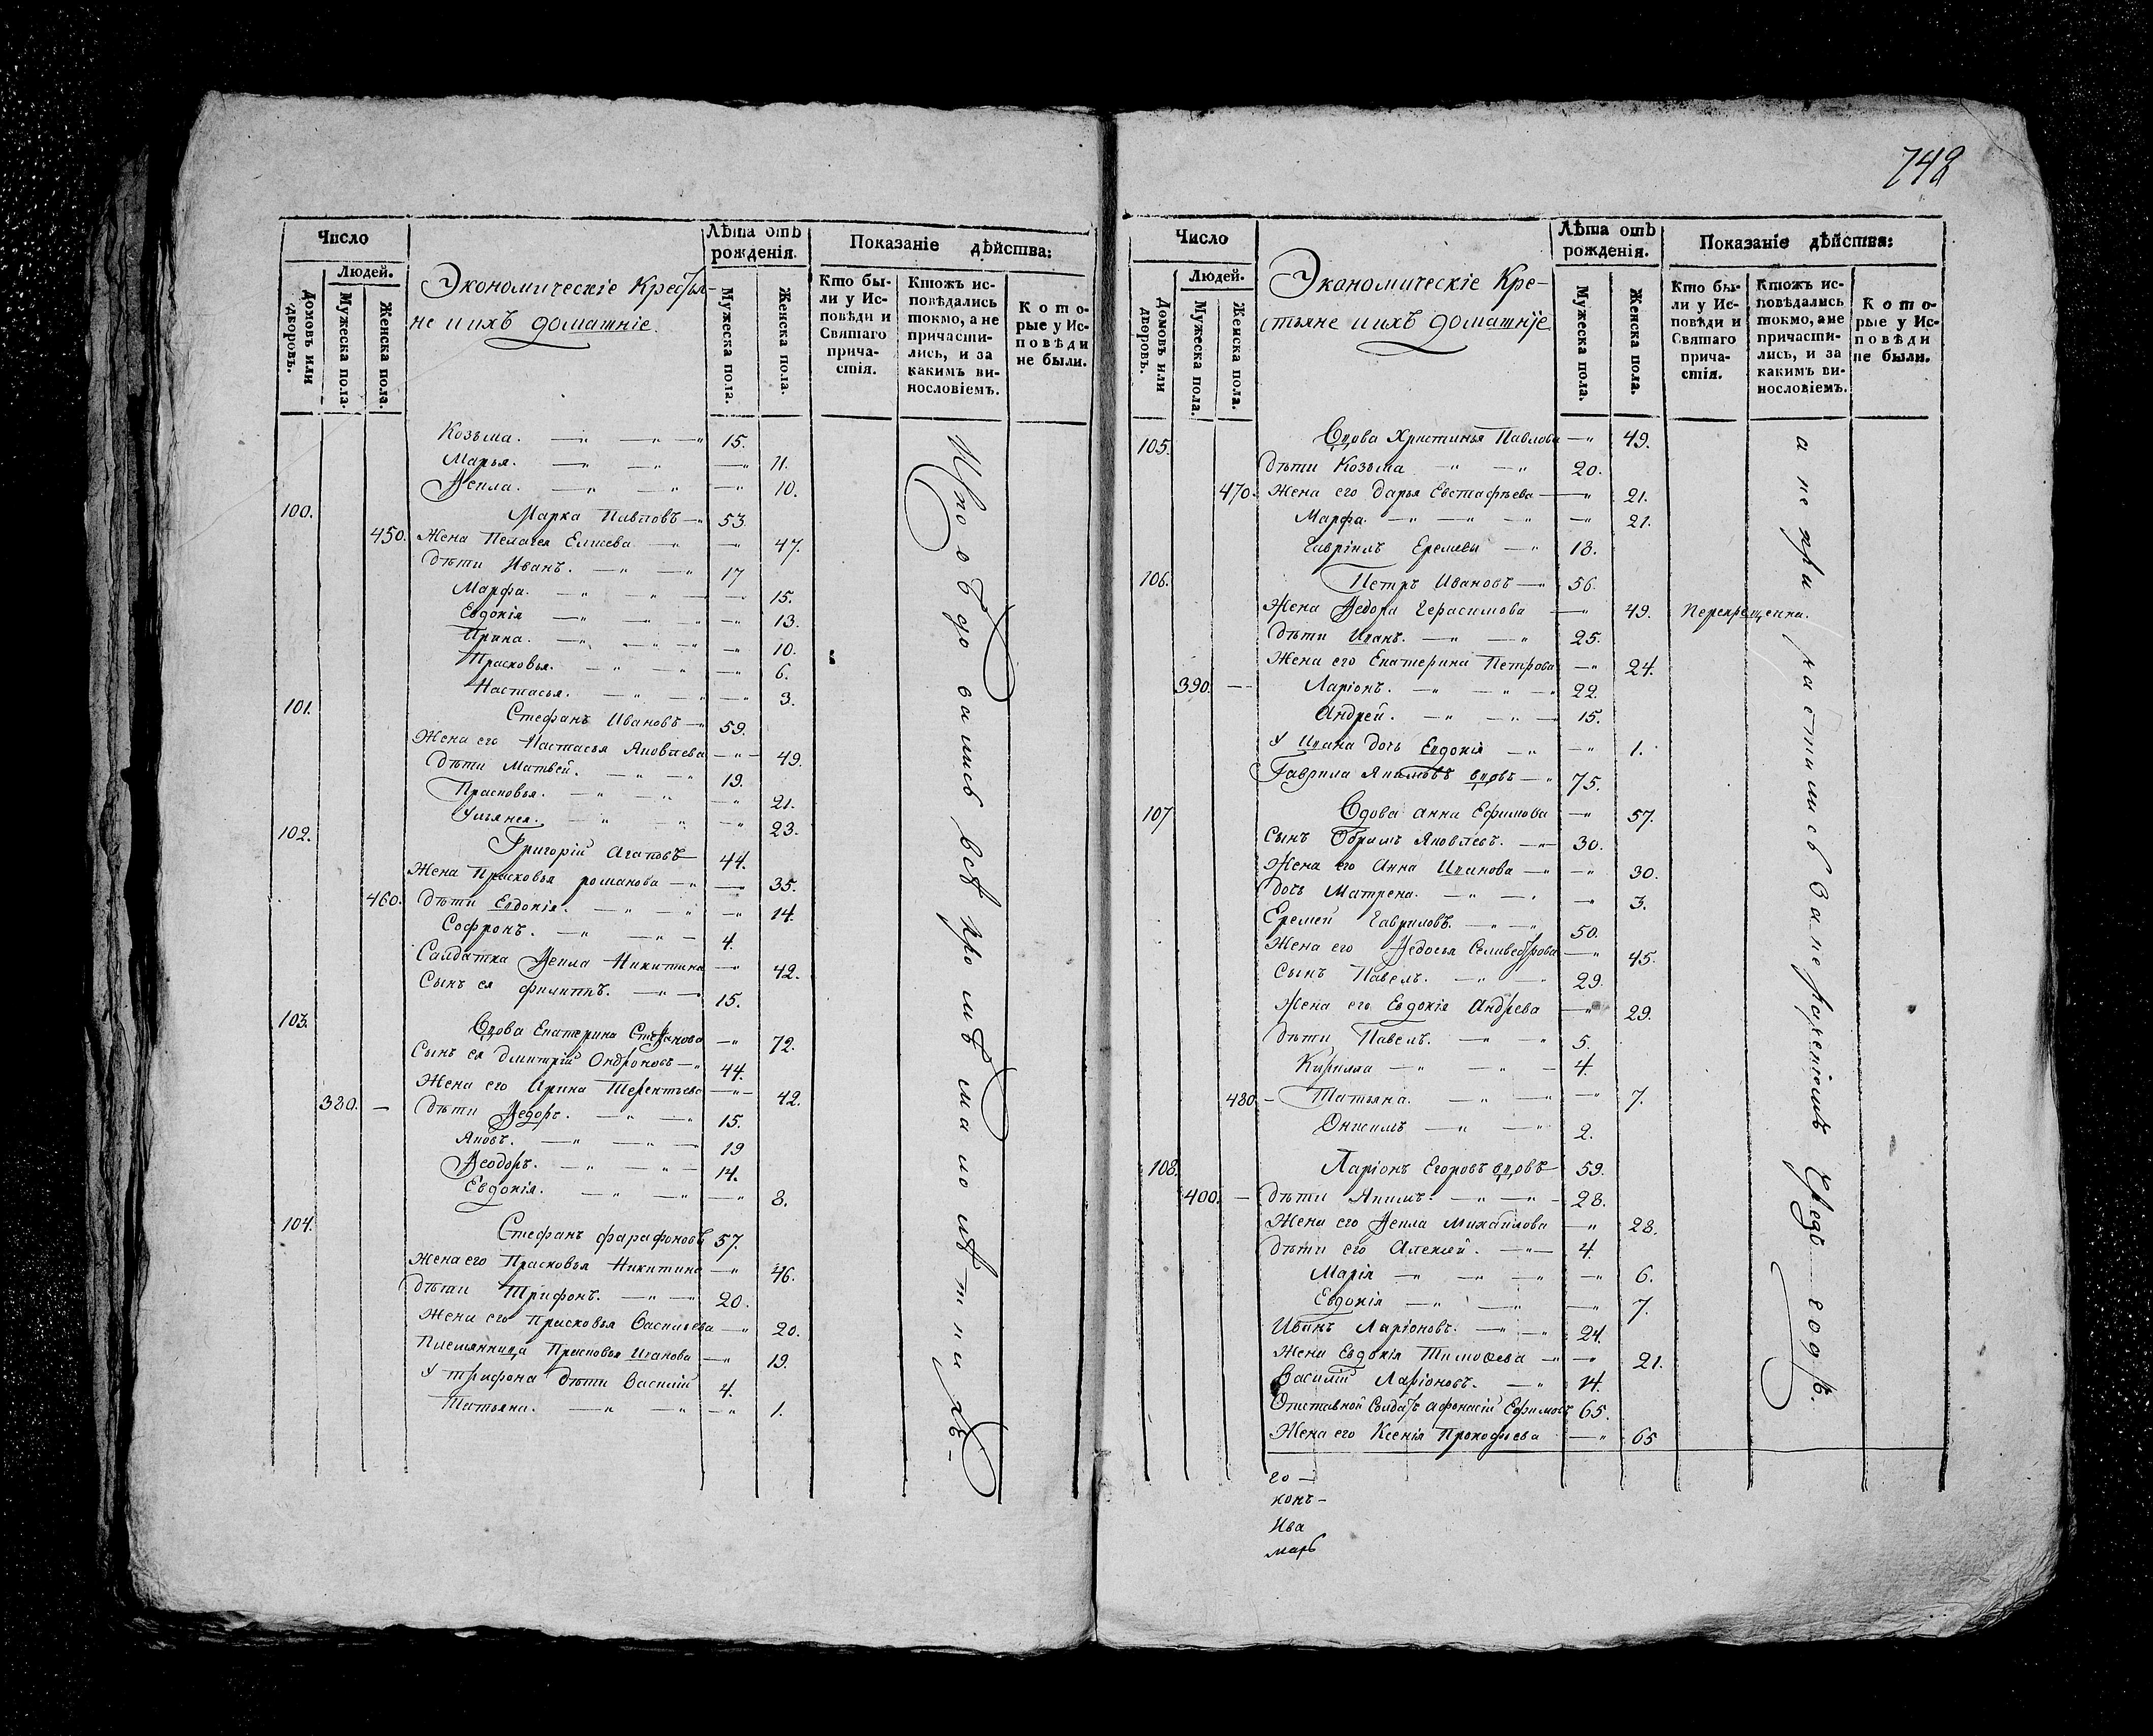 742
Число
Людей.
Домовъ или дворовъ.
Мужеска пола.
Женска пола.
Экономическіе Крестья-
не и ихъ домашніе.
Лѣта отъ рожденія.
Мужеска пола.
Женска пола.
Показаніе дѣйства:
Кто бы-
ли у Ис-
повѣди и
Святаго
прича-
стія.
Ктожъ ис-
повѣдались
токмо, а не
причасти-
лись, и за
какимъ ви-
нословіемъ.
Кото-
рые у Ис-
повѣди
не были.
Козьма. 15.
Марья. 11.
Ѳекла. 10.
100. Марка Павловъ 53.
450. Жена Пелагея 47.
Дѣти Иванъ. 17
Марфа. 15.
Евдокія 13.
Ирина. 10.
Прасковья. 6.
Настасья. 3.
101. Стефанъ Ивановъ 59.
Жена его Настасья Яковлева 49.
Дѣти Матвей. 19.
Прасковья. 21.
Ульянея. 23.
102. Григорій Агаповъ 44.
Жена Прасковья романова 35.
460. Дѣти Евдокія. 14.
Софронъ. 4.
Салдатка Ѳекла Никитина 42.
Сынъ ея филиппъ. 15.
103. Вдова Екатерина Стефанова 72.
Сынъ ея Дмитрій Ондроновъ 44.
Жена его Ирина Терентьева 42.
380. Дѣти Ѳедоръ. 15.
Яковъ. 19
Ѳеодоръ. 14.
Евдокія. 8.
104. Стефанъ фарафоновъ 57.
Жена его Прасковья Никитина 46.
Дѣти Трифонъ. 20.
Жена его Прасковья Васильева 20.
Племянница Прасковья Иванова 19.
У трифона дѣти Василій 4.
Татьяна. 1.
всѣ кромѣ малолѣтнихъ
Число
Людей.
Домовъ или дворовъ.
Мужеска пола.
Женска пола.
Экономическіе Кре-
стьяне и ихъ домашніе
Лѣта отъ рожденія.
Мужеска пола.
Женска пола.
Показаніе дѣйства:
Кто бы-
ли у Ис-
повѣди и
Святаго
прича-
стія.
Ктожъ ис-
повѣдались
токмо, а не
причасти-
лись, и за
какимъ ви-
нословіемъ.
Кото-
рые у Ис-
повѣди
не были.
105. Вдова Христинья Павлова 49.
Дѣти Козьма 20.
470. Жена его Дарья Евстафьева 21.
Марфа. 21.
Гавріилъ Еремевы 18.
106. Петръ Ивановъ 56.
Жена Ѳедора Герасимова 49.
Дѣти Иванъ. 25.
Жена его Екатерина Петрова 24.
390. Ларіонъ. 22.
Андрей. 15.
У Ивана дочь Евдокія 1.
Гаврила Якимовъ вдовъ 75.
107 Вдова анна Ефимова 57.
Сынъ Обрамъ Яковлевъ. 30.
Жена его Анна Иванова 30.
дочь Матрена. 3.
Еремей Гавриловъ. 50.
Жена его Ѳедосья Селиверстова 45.
Сынъ Павелъ. 29.
Жена его Евдокія Андрева 29.
Дѣти Павелъ. 5.
Кирилла 4.
480 Татьяна. 7.
Онисимъ 2.
108. Ларіонъ Егоровъ вдовъ 59.
400. Дѣти Якимъ. 28.
Жена его Ѳекла Михайлова 28.
Дѣти его Алексей. 4.
Марія 6.
Евдокія 7.
Иванъ Ларіоновъ. 24.
Жена Евдокія Тимоѳеева 21.
Василій Ларіоновъ. 14.
Отставной Солдатъ афонасій Ефимовъ 65.
Жена его Ксенія Прокофиева 65
а не причастились за нераженіемъ